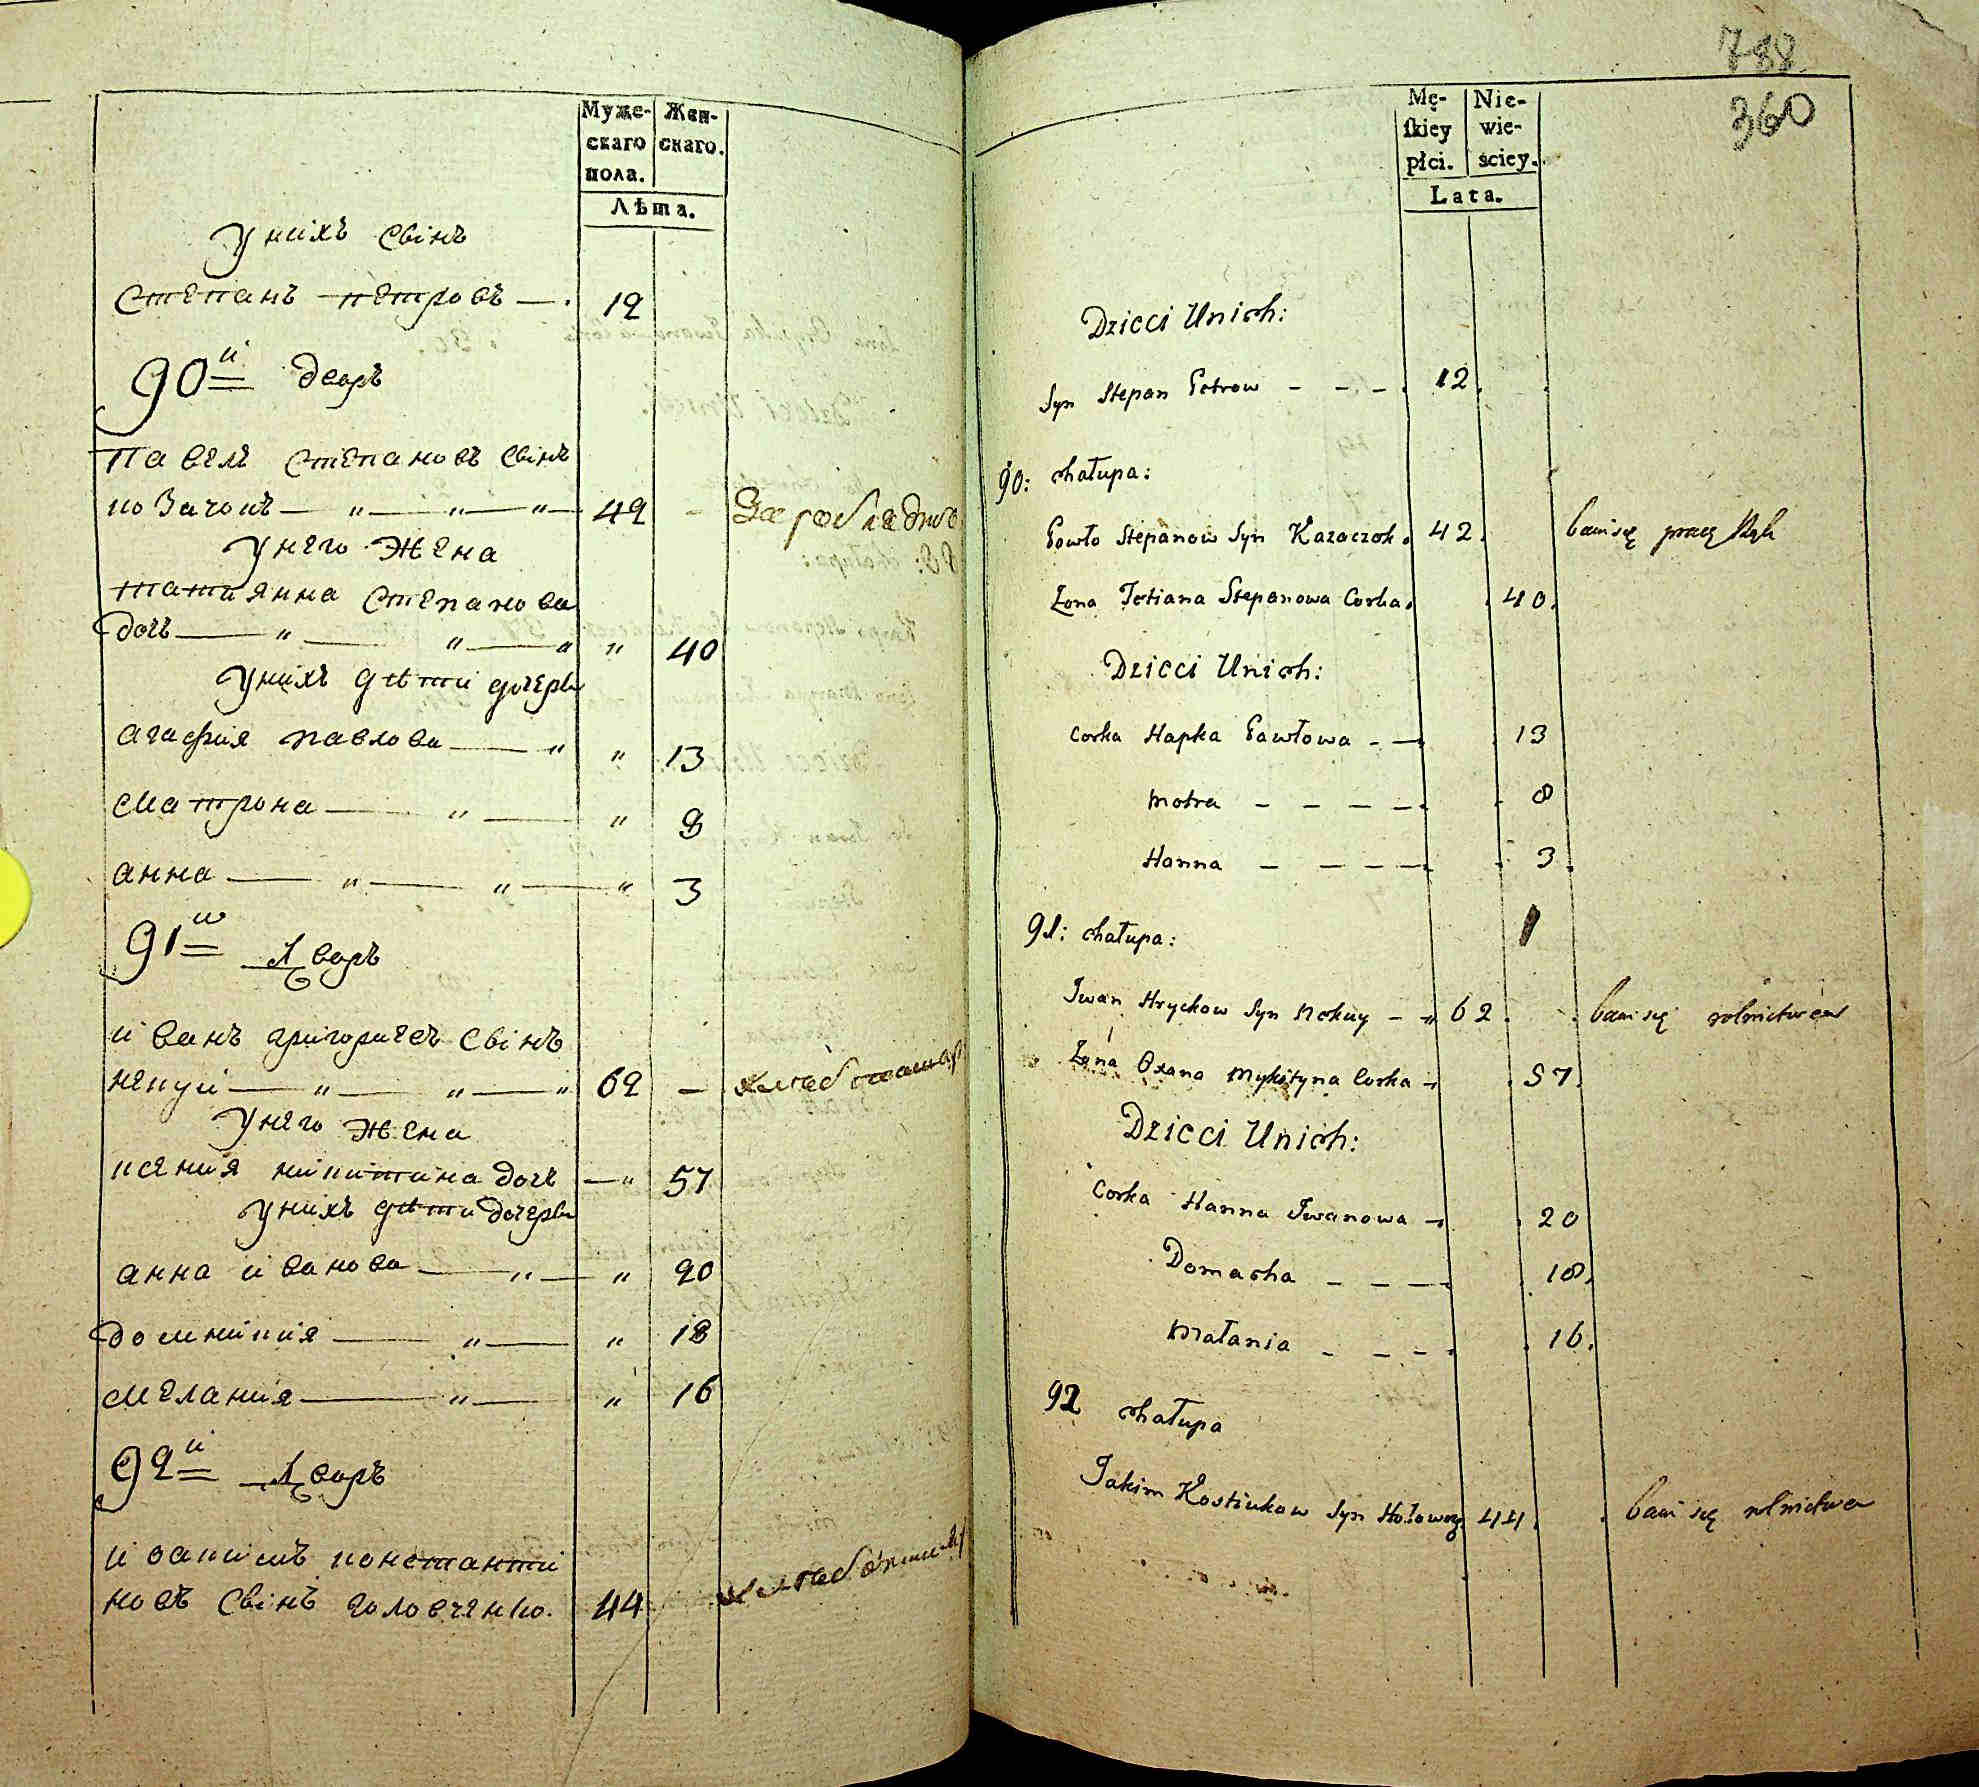 Муже-
скаго
пола.
Жен-
скаго.
Лѣта.
У нихъ Свінъ
Степанъ петровъ — . 12
90й дворъ
Павелъ Степановъ Свінъ
козачокъ — " — " — " — 42 -
У него жена
татиянна Степанова
дочь — " — " — " " 40
У нихъ дѣти дочери
агафия павлова — " " 13
Матрона — " — " 8
анна — " — " — " 3
91й Дворъ
иванъ григориевъ Свінъ
некуй — " — " — " 62 —
У него жена
ксения никитина дочь — " 57
У нихъ дѣти дочери
анна иванова — " — " 20
домникия — " — " 18
Мелания — " — " 16
92й Дворъ
иоакимъ константи
новъ Свінъ головченко. 44
788
360
Mę-
ſkiey
płci.
Nie-
wie-
ściey.
Lata.
Dzieci Unich:
Syn Stepan Petrow - - - . 12.
90: chałupa:
Pawło Stepanow Syn Kazaczok. 42. bawi się pracą Rąk
Zona Tetiana Stepanowa Corka. 40.
Dzieci Unich:
Corka Hapka Pawłowa - - 13
Motra - - - - - 8
Hanna - - - - 3.
91: chałupa:
Iwan Hryckow Syn Nekuy - - 62. bawi się rolnictwem
Zona Oxana Mykityna Corka - 57.
Dzieci Unich:
Corka Hanna Iwanowa - 20
Domacha - - - 18.
Małania - - - - 16.
92 chałupa
Jakim Kostiukow Syn 44. bawi się rolnictwem